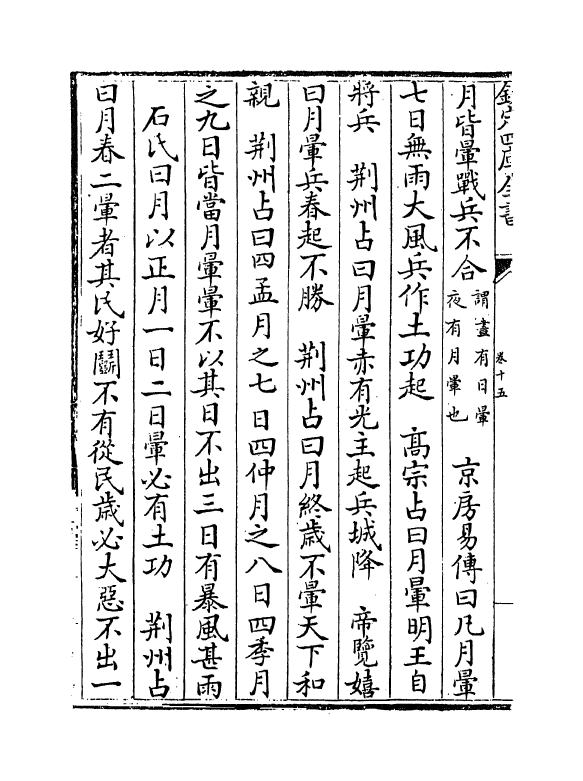 欽定四庫全書
卷十五
月皆暈戰兵不合謂晝有日暈夜有月暈也 京房易傳曰凡月暈
七日無雨大風兵作土功起 高宗占曰月暈明王自
將兵 荆州占曰月暈赤有光主起兵城降 帝覽嬉
曰月暈兵春起不勝 荆州占曰月終歲不暈天下和
親 荆州占曰四孟月之七日四仲月之八日四季月
之九日皆當月暈暈不以其日不出三日有暴風甚雨
石氏曰月以正月一日二日暈必有土功 荆州占
曰月春二暈者其民好鬬不有從民歲必大惡不出一